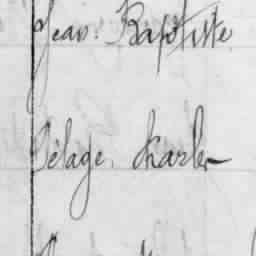 Jean Baptiste
Pélage Charles